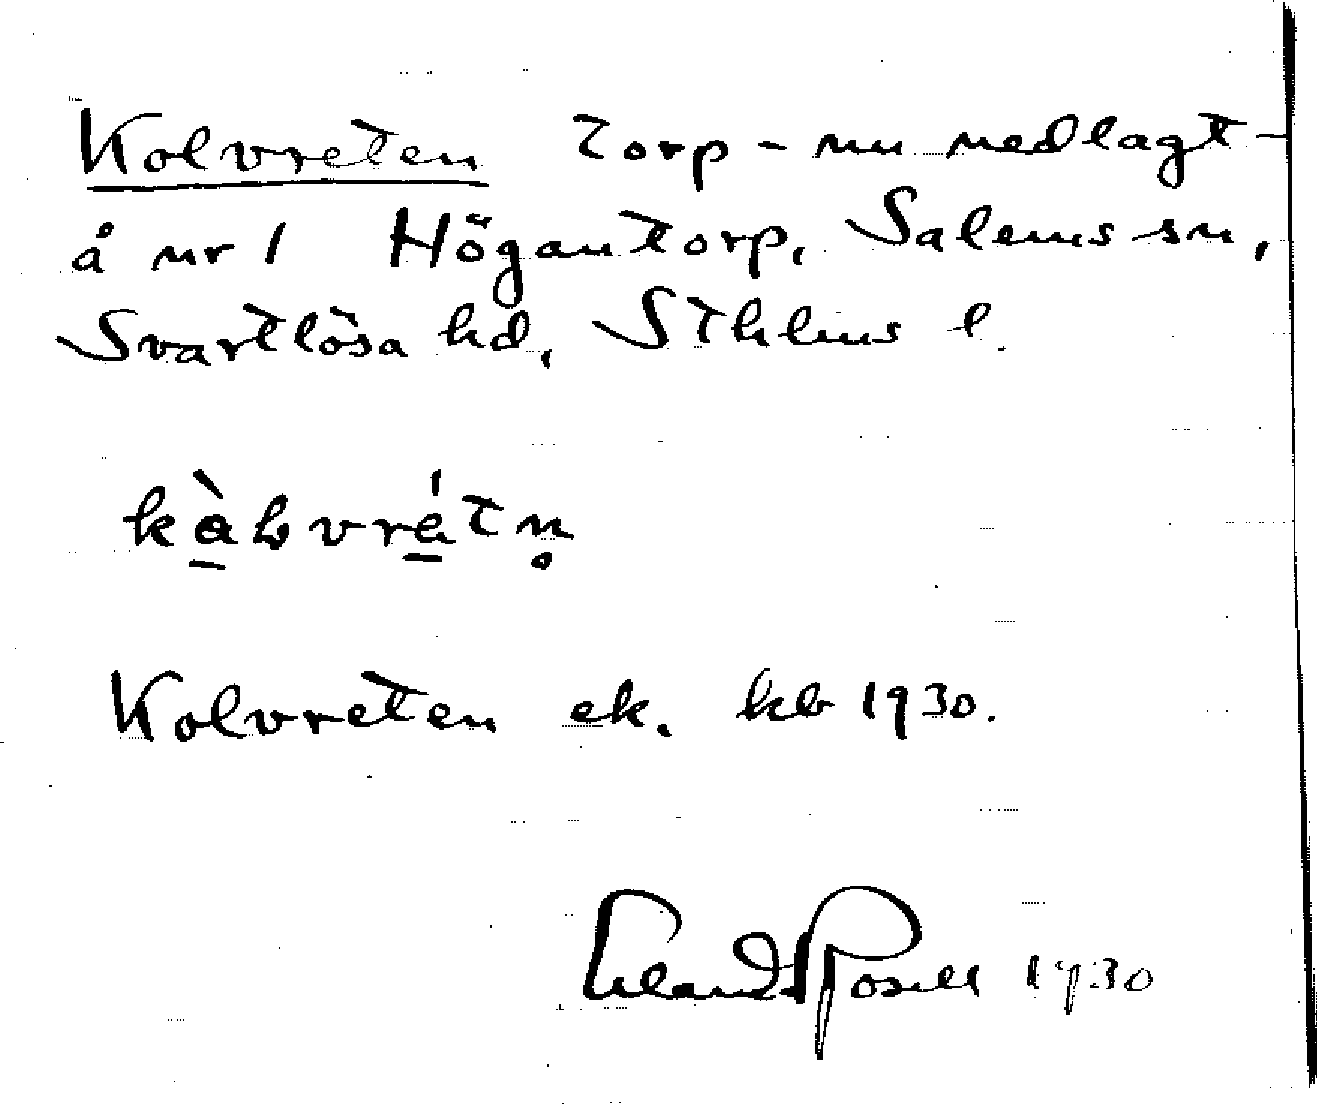 Kolvreten torp - nu nedlagt -
å nr 1 Högantorp, Salems sn,
Svartlösa hd, Sthlms l.
Kolvreten ek. kb 1930.
Erland Rosell 1930